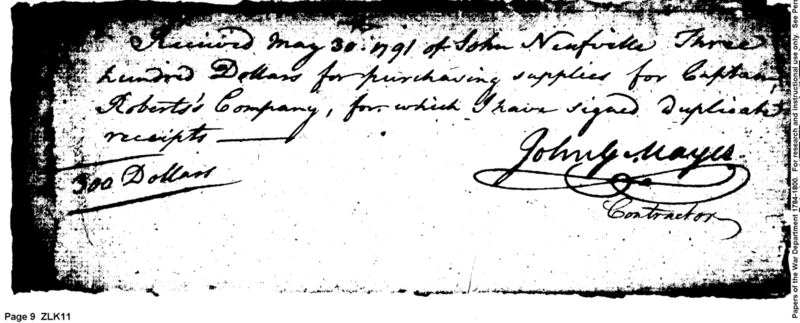 Received May 30. 1791 of John Neufville Three
hundred Dollars for purchasing supplies for Captain
Roberts's Company, for which I have signed duplicate
receipts
300 Dollars
John G. Mayer
Contractor
Page 9 ZLK11
Papers of the War Department 1784-1800. For research and instructional use only. See